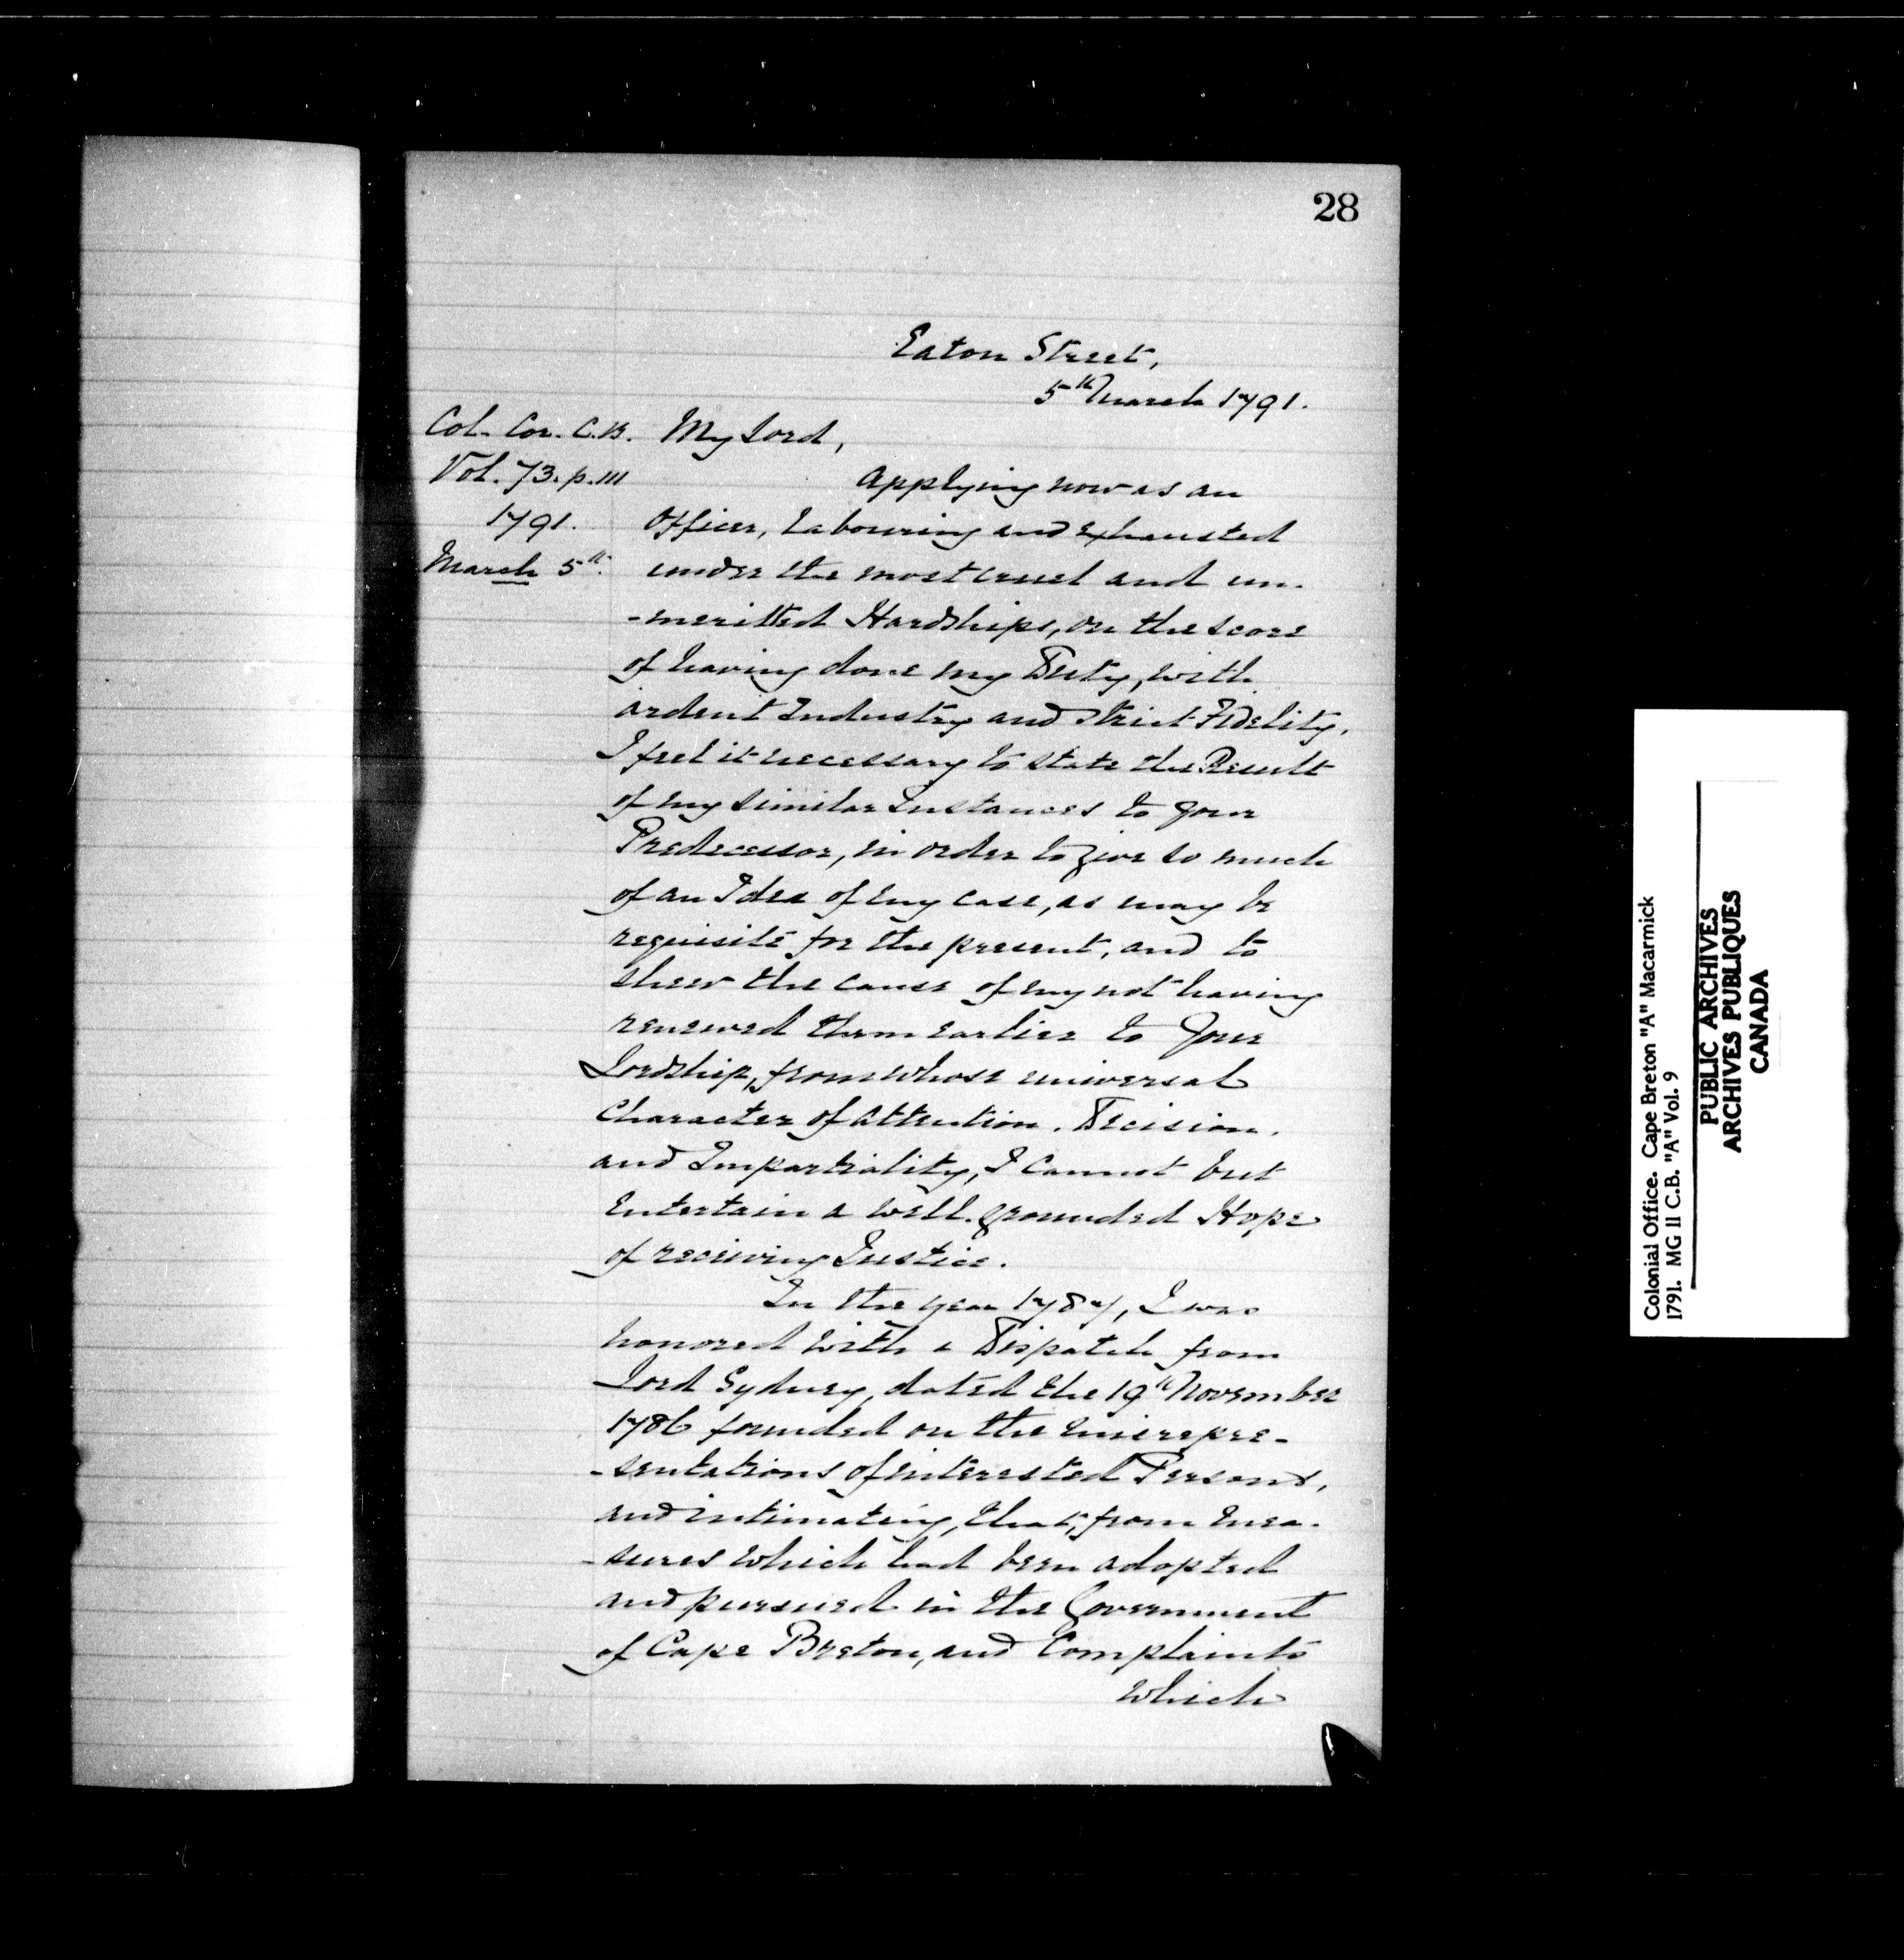 28
Eaton Street,
5th March 1791.
Col. Cor. C.B.
Vol. 73. p. 111
1791.
March 5th.
My Lord,
Applying now as an
Officer, Labouring and Exhausted
under the most cruel and un-
-meritted Hardships, on the score
of having done my Duty, with
ardent Industry and strict Fidelity,
I feel it necessary to state the Result
of my similar Instances to your
Predecessor, in order to give so much
of an Idea of my case, as may be
requisite for the present, and to
shew the cause of my not having
renewed them earlier to Your
Lordship, from whose universal
Character of Attention, Decision,
and Impartiality, I Cannot but
Entertain a well-grounded Hope
of receiving Justice.
In the year 1787, I was
honored with a Dispatch from
Lord Sydney, dated the 19th November
1786 founded on the misrepre-
-sentations of interested Persons,
and intimating, that, from mea-
-sures which had been adopted
and pursued in the Government
of Cape Breton, and Complaints
which
Colonial Office. Cape Breton "A" Macarmick
1791. MG 11 C.B. "A" Vol. 9
PUBLIC ARCHIVES
ARCHIVES PUBLIQUES
CANADA